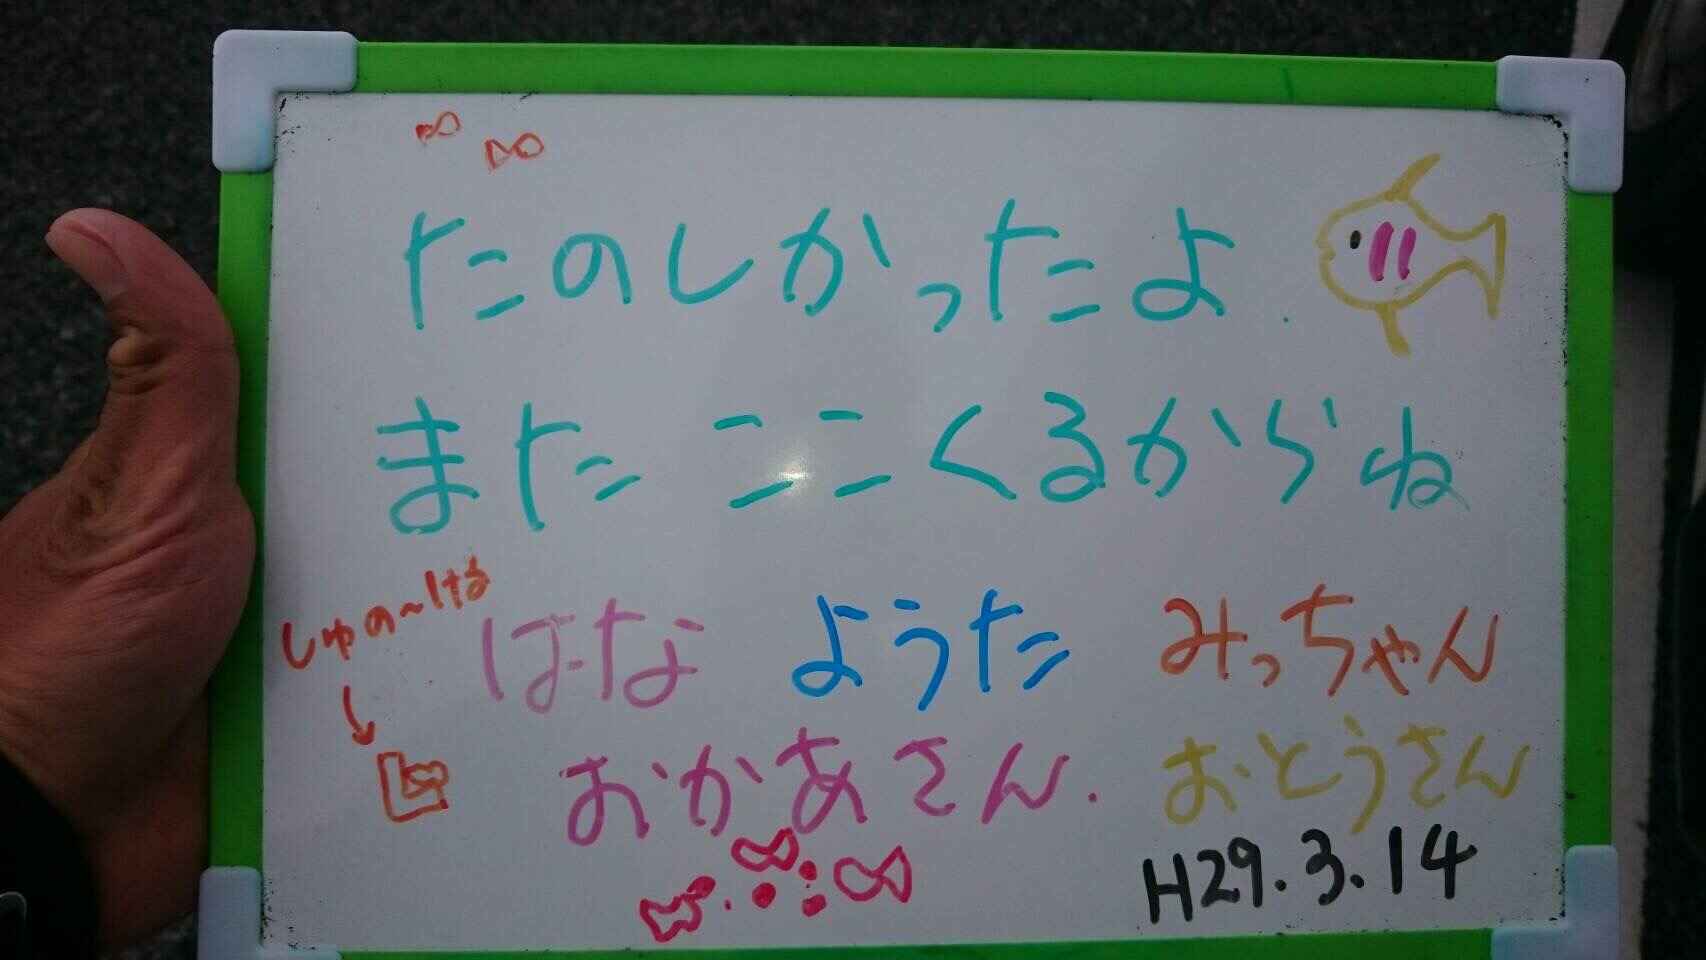 たのしかったよ.
またここくるからね
しゅの～ける
ばな ようた みっちゃん
おかあさん. おとうさん
H29.3.14